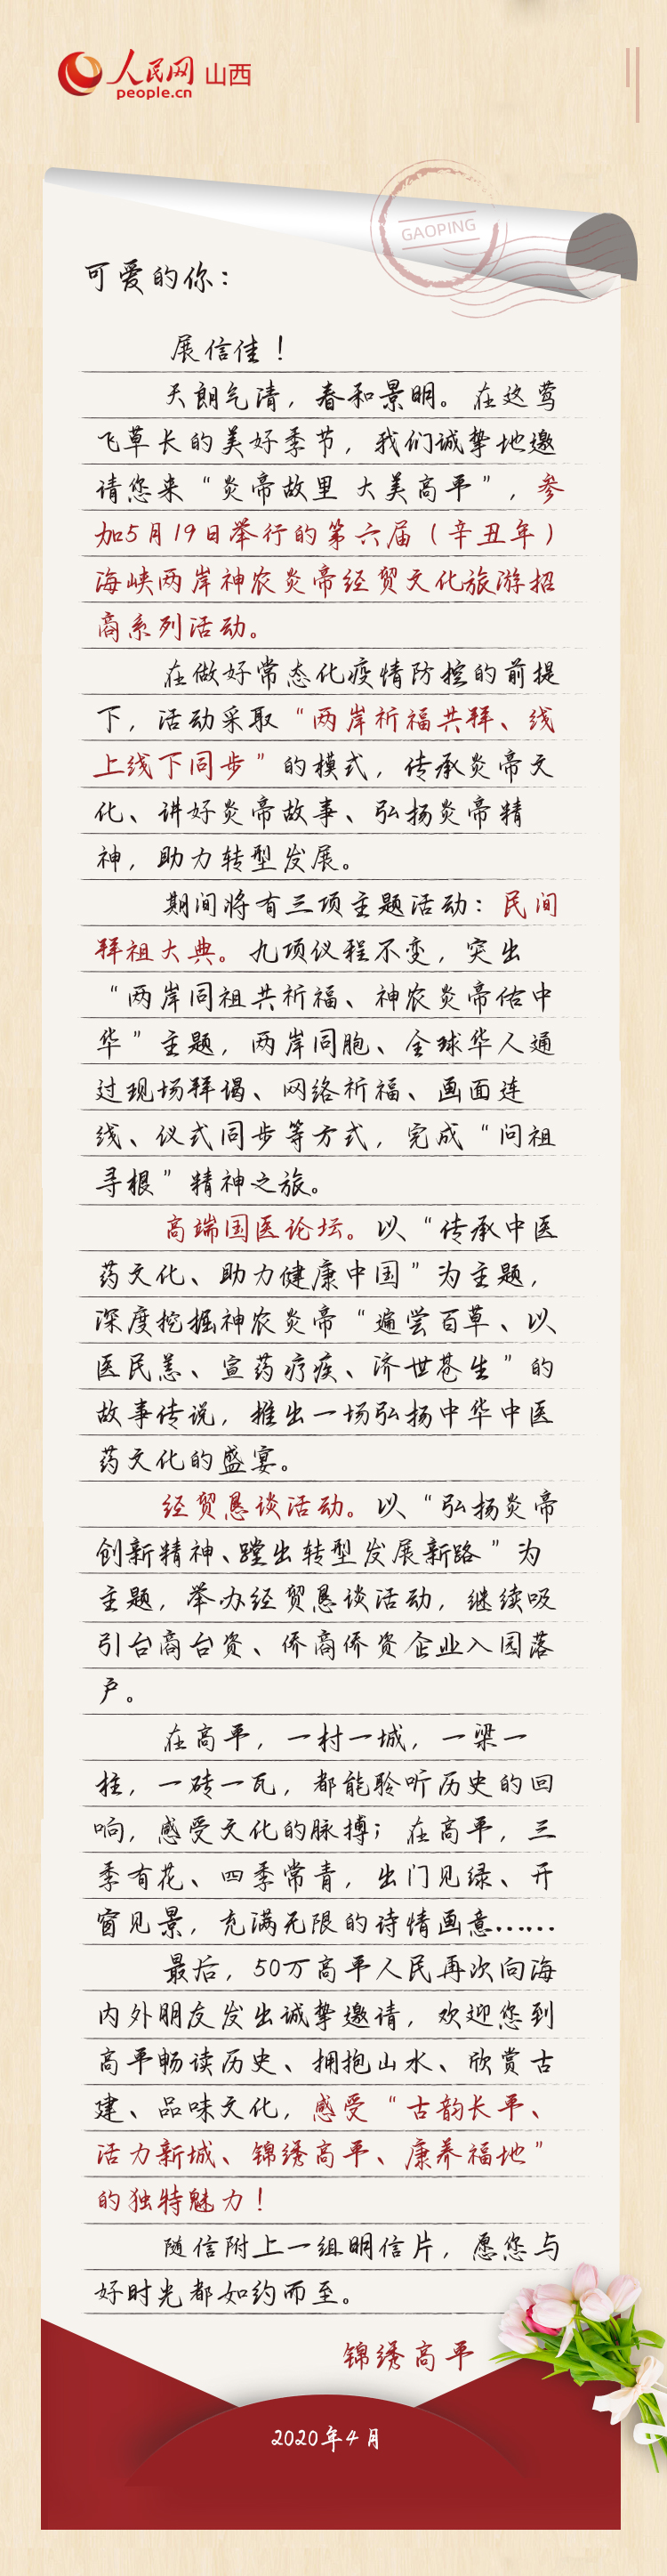 人民网 山西
people.cn
GAOPING
可爱的你：
展信佳！
天朗气清，春和景明。在这莺
飞草长的美好季节，我们诚挚地邀
请您来“炎帝故里 大美高平”，参
加5月19日举行的第六届（辛丑年）
海峡两岸神农炎帝经贸文化旅游招
商系列活动。
在做好常态化疫情防控的前提
下，活动采取“两岸祈福共拜、线
上线下同步”的模式，传承炎帝文
化、讲好炎帝故事、弘扬炎帝精
神，助力转型发展。
期间将有三项主题活动：民间
拜祖大典。九项仪程不变，突出
“两岸同祖共祈福、神农炎帝佑中
华”主题，两岸同胞、全球华人通
过现场拜谒、网络祈福、画面连
线、仪式同步等方式，完成“问祖
寻根”精神之旅。
高端国医论坛。以“传承中医
药文化、助力健康中国”为主题，
深度挖掘神农炎帝“遍尝百草、以
医民恙、宣药疗疾、济世苍生”的
故事传说，推出一场弘扬中华中医
药文化的盛宴。
经贸恳谈活动。以“弘扬炎帝
创新精神、蹚出转型发展新路”为
主题，举办经贸恳谈活动，继续吸
引台商台资、侨商侨资企业入园落
户。
在高平，一村一城，一梁一
柱，一砖一瓦，都能聆听历史的回
响，感受文化的脉搏；在高平，三
季有花、四季常青，出门见绿、开
窗见景，充满无限的诗情画意……
最后，50万高平人民再次向海
内外朋友发出诚挚邀请，欢迎您到
高平畅读历史、拥抱山水、欣赏古
建、品味文化，感受“古韵长平、
活力新城、锦绣高平、康养福地”
的独特魅力！
随信附上一组明信片，愿您与
好时光都如约而至。
锦绣高平
2020年4月